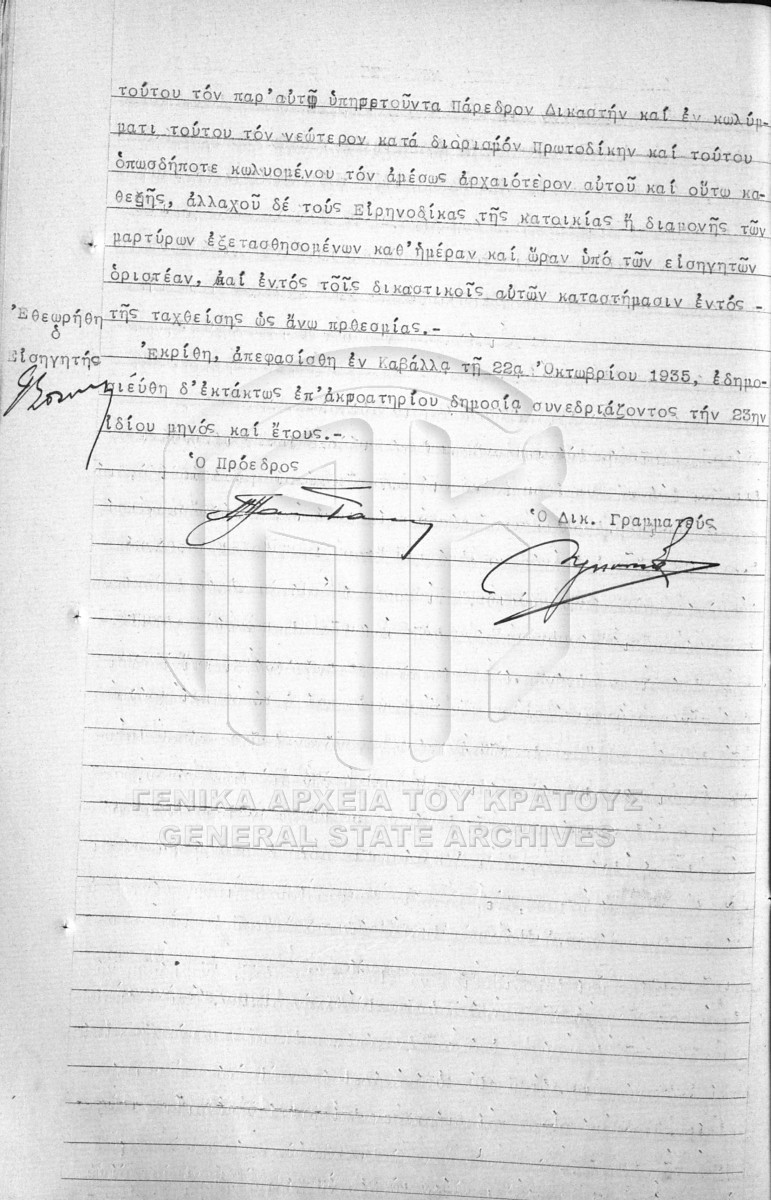 τούτου τόν παρ'αὐτῷ ὑπηρετοῦντα Πάρεδρον Δικαστήν καί ἐν κωλύμ-
ματι τούτου τόν νεώτερον κατά διορισμόν Πρωτοδίκην καί τούτου
ὁπωσδήποτε κωλυομένου τόν ἀμέσως ἀρχαιότερον αὐτοῦ καί οὕτω κα-
θεξῆς, ἀλλαχοῦ δέ τούς Εἰρηνοδίκας τῆς κατοικίας ἤ διαμονῆς τῶν
μαρτύρων ἐξετασθησομένων καθ'ἡμέραν καί ὥραν ὑπό τῶν εἰσηγητῶν
ὁριστέαν, καί ἐντός τοῖς δικαστικοῖς αὐτῶν καταστήμασιν ἐντός -
τῆς ταχθείσης ὡς ἄνω πρθεσμίας.-
Ἐθεωρήθη
ὁ
Εἰσηγητής
Ἐκρίθη, ἀπεφασίσθη ἐν Καβάλλᾳ τῇ 22ᾳ Ὀκτωβρίου 1935, ἐδημο-
σιεύθη δ'ἐκτάκτως ἐπ'ἀκροατηρίου δημοσίᾳ συνεδριάζοντος τήν 23ην
ἰδίου μηνός καί ἔτους.-
Ὁ Πρόεδρος
Ὁ Δικ. Γραμματεύς
ΓΕΝΙΚΑ ΑΡΧΕΙΑ ΤΟΥ ΚΡΑΤΟΥΣ
GENERAL STATE ARCHIVES